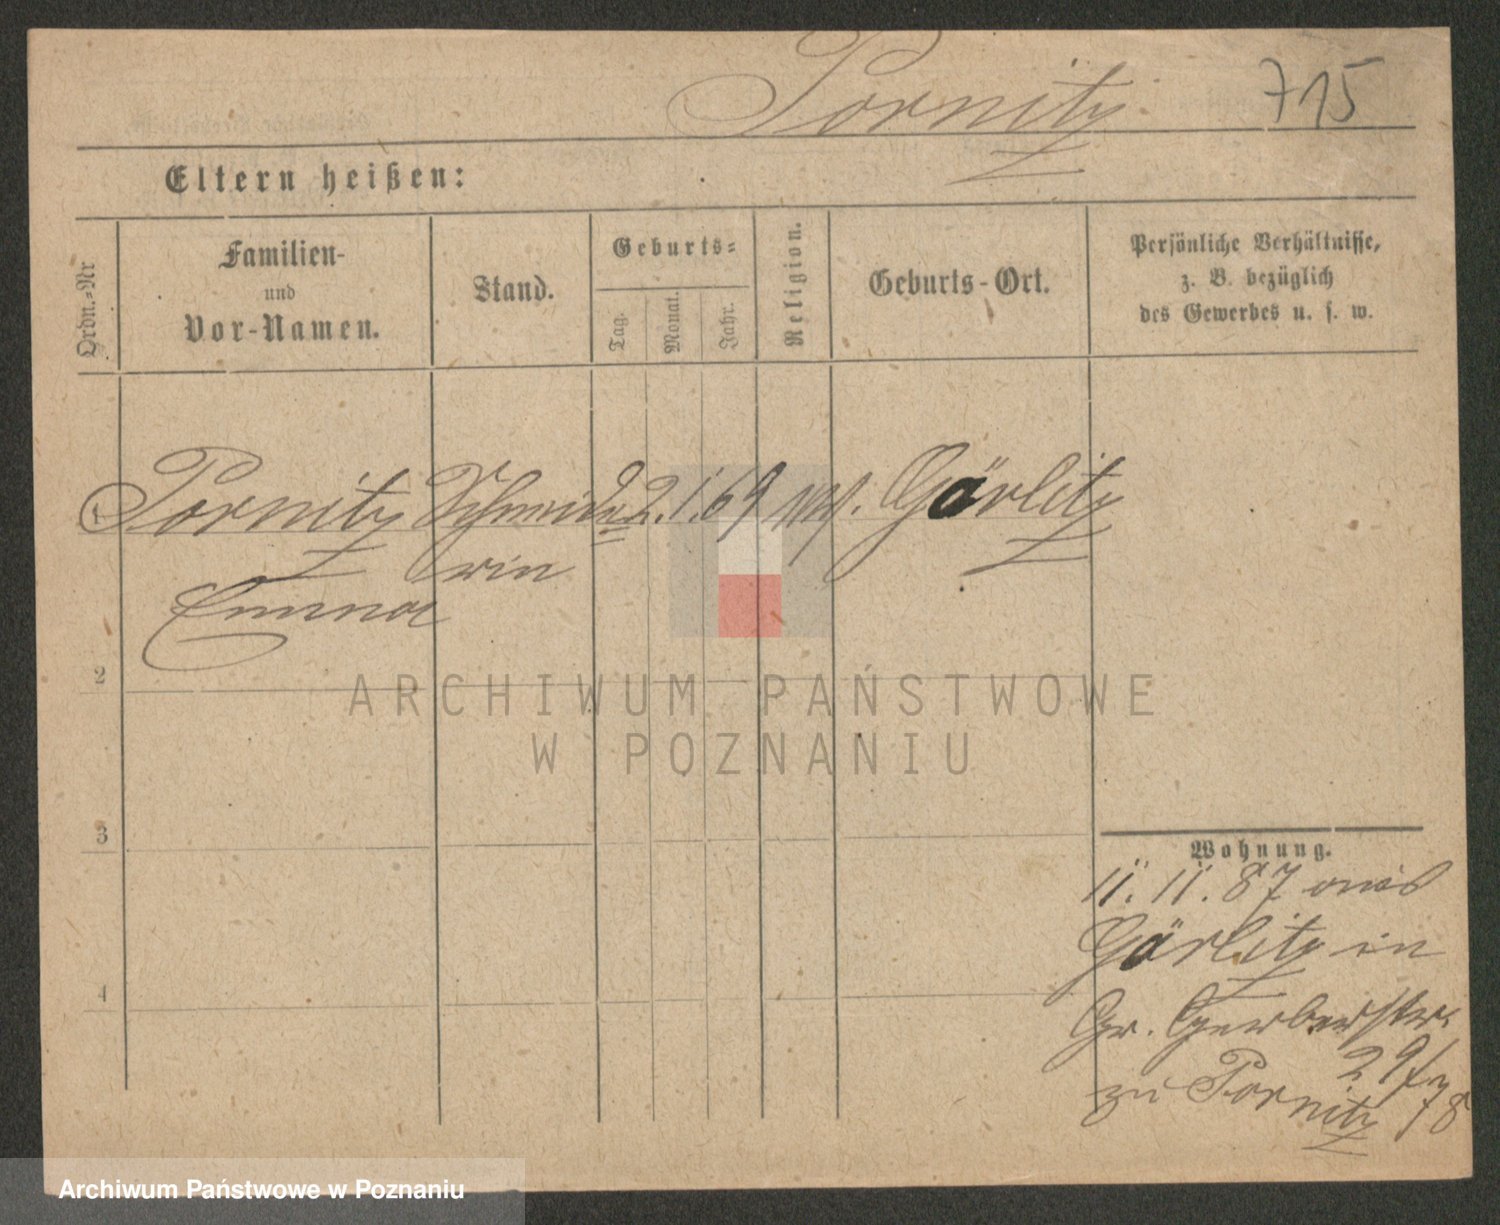 Pornitz 715
Eltern heißen:
Ordn.-Nr
Familien-
und
Vor-Namen.
Stand.
Geburts-
Tag.
Monat.
Jahr.
Religion.
Geburts-Ort.
Persönliche Verhältnisse,
z. B. bezüglich
des Gewerbes u. s. w.
Pornitz Schneide 2. 1. 69 Görlitz
rin
Emma
2
3
4
Wohnung.
11. 11. 87 aus
Görlitz in
Gr. Gerberstr.
29/
zu Pornitz
ARCHIWUM PAŃSTWOWE
W POZNANIU
Archiwum Państwowe w Poznaniu